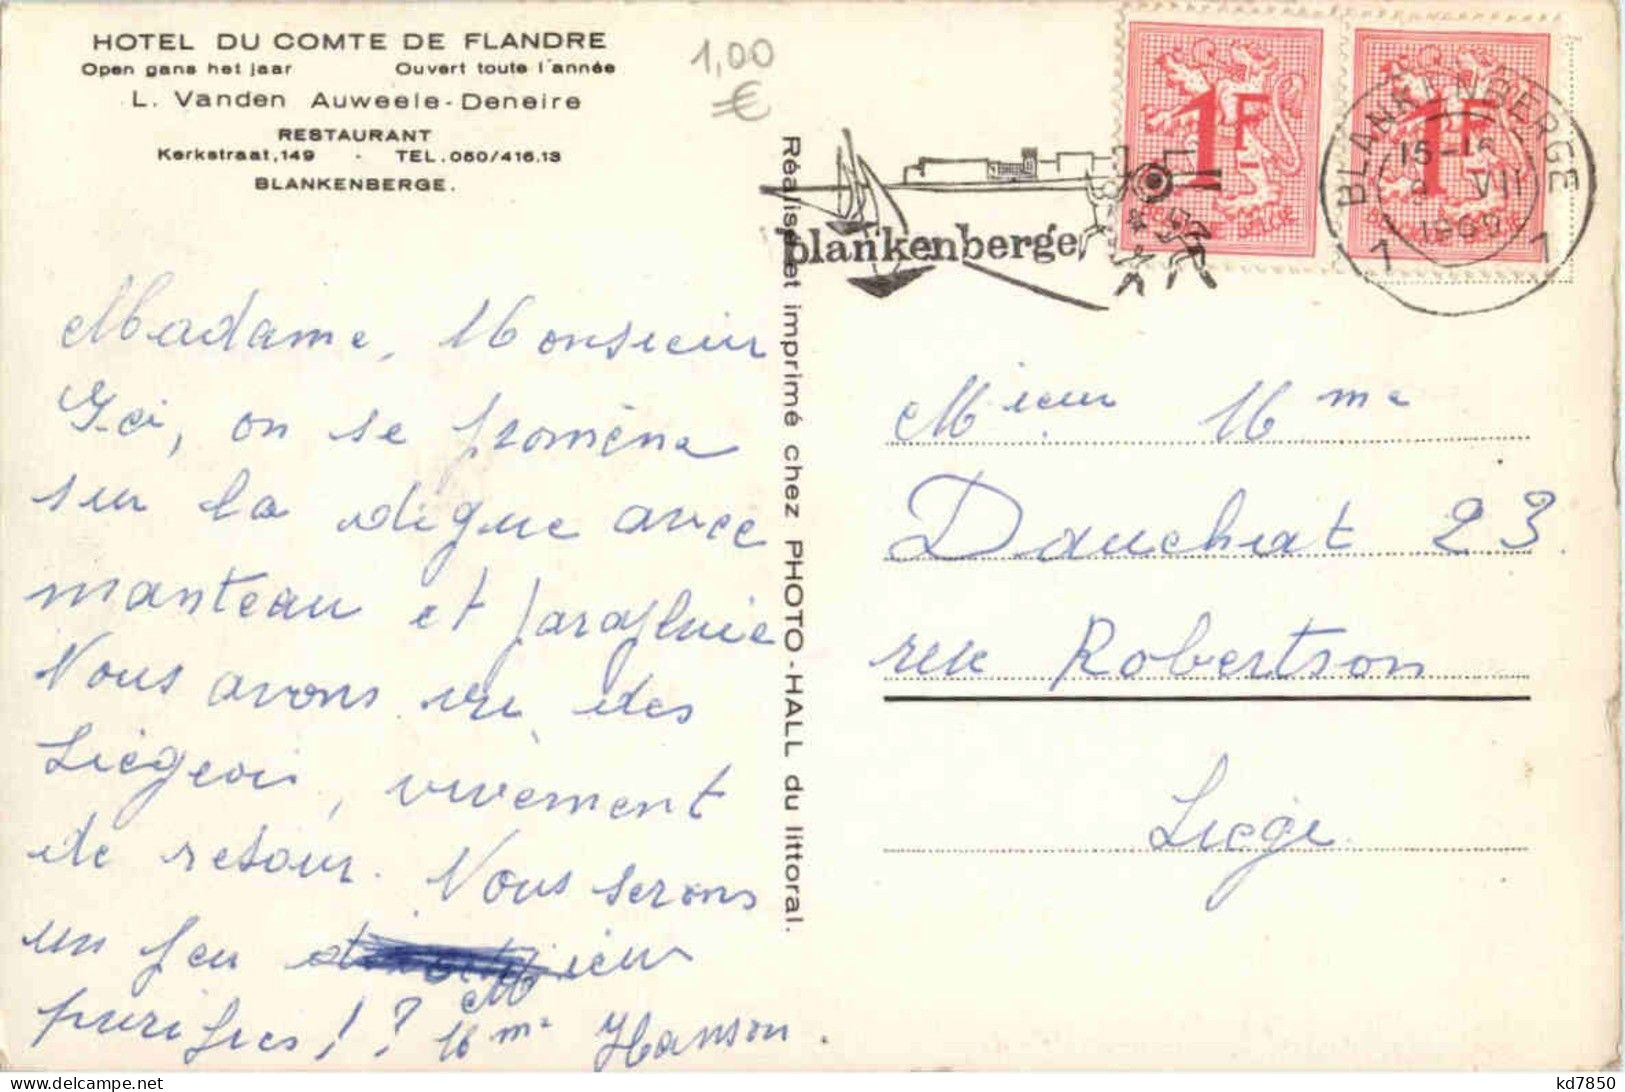 HOTEL DU COMTE DE FLANDRE
Open gans het jaar Ouvert toute l'année
L. Vanden Auweele-Deneire
RESTAURANT
Kerkstraat,149 - TEL.050/416.13
BLANKENBERGE.
1,00
€
Réalisé et imprimé chez PHOTO-HALL du littoral.
blankenberge
1F
1F
BLANKENBERGE
15-15
VII
1969
1 1
Madame, Monsieur
Ici, on se promène
sur la digue avec
manteau et parapluie
Nous avons vu des
Liégeois, vivement
de retour. Nous serons
un peu
purifiés!? Mieur Mme Hanson.
Mieur Mme
Dauchat 23
rue Robertson
Liège.
kd7850